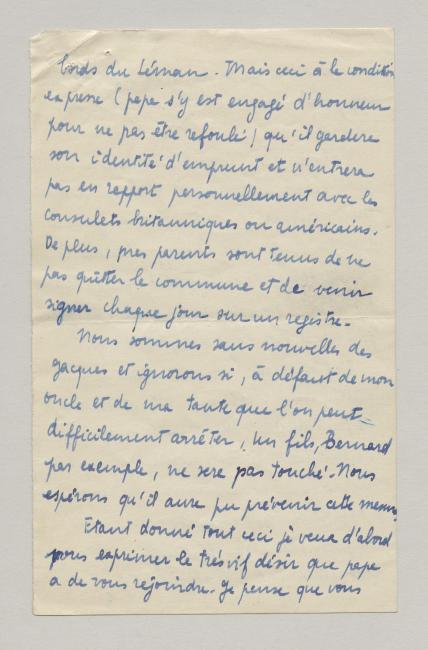 bords du Léman. Mais ceci à la condition
expresse (papa s'y est engagé d'honneur
pour ne pas être refoulé) qu'il gardera
son identité d'emprunt et n'entrera
pas en rapport personnellement avec les
consulats britanniques ou américains.
De plus, mes parents sont tenus de ne
pas quitter la commune et de venir
signer chaque jour sur un registre.
Nous sommes sans nouvelles des
Jacques et ignorons si, à défaut de mon
oncle et de ma tante que l'on peut
difficilement arrêter, un fils, Bernard
par exemple, ne sera pas touché. Nous
espérons qu'il aura pu prévenir cette mesure.
Etant donné tout ceci je veux d'abord
vous exprimer le très vif désir que papa
a de vous rejoindre. Je pense que vous